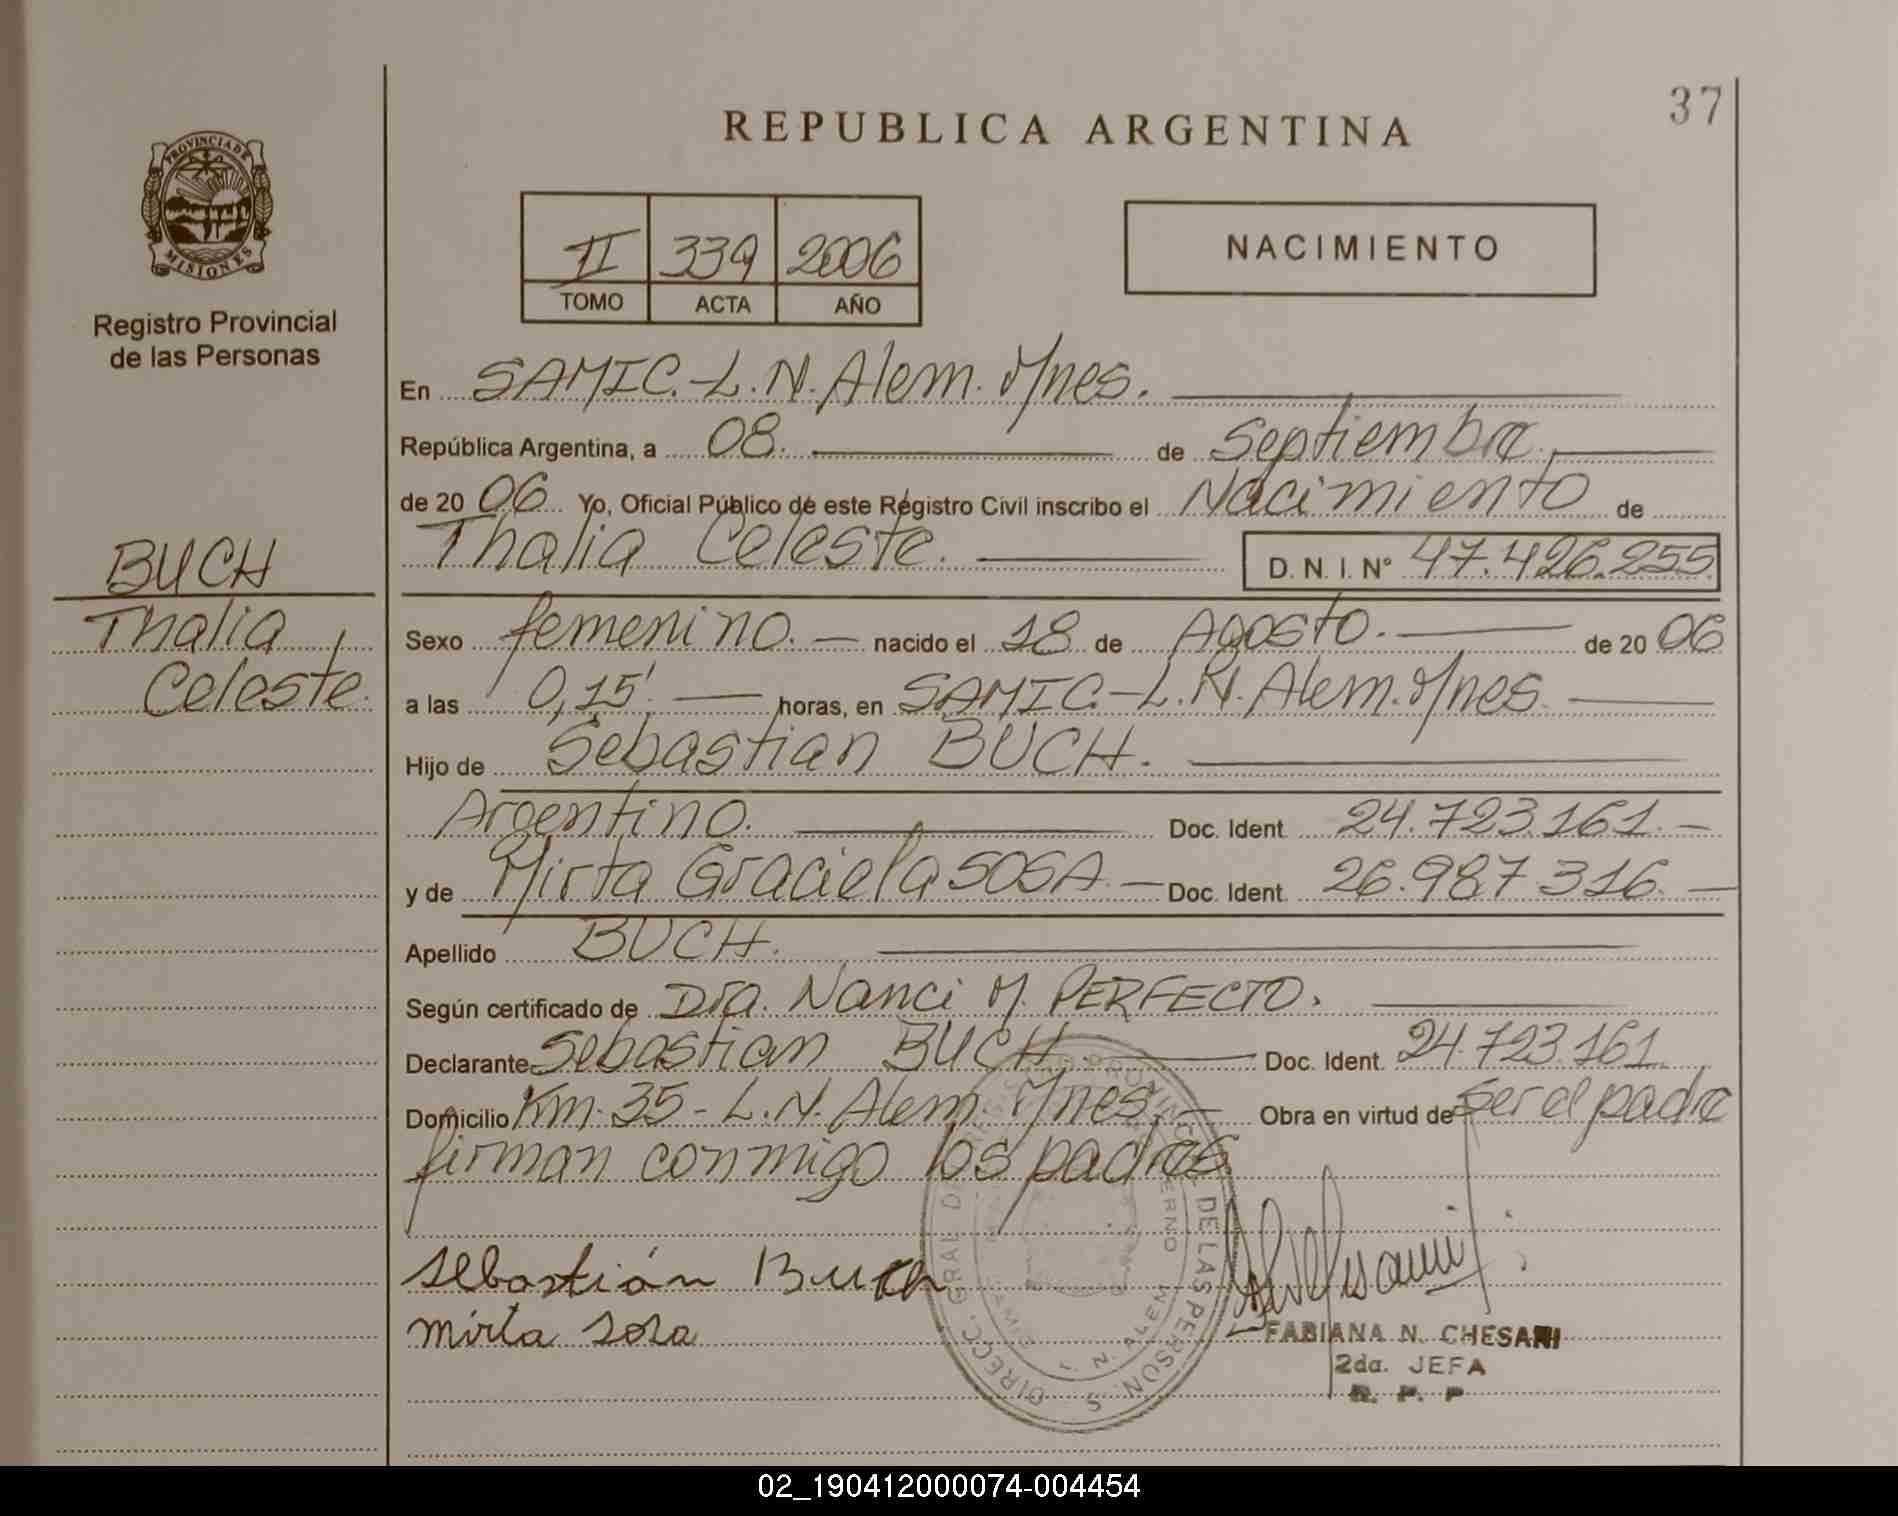 37
REPUBLICA ARGENTINA
PROVINCIA DE
MISIONES
Registro Provincial
de las Personas
II 339 2006
TOMO ACTA AÑO
NACIMIENTO
En SAMIC.-L.N.Alem.Mnes.
República Argentina, a 08. de Septiembre.
de 20 06. Yo, Oficial Público de este Registro Civil inscribo el Nacimiento de
Thalia Celeste. D.N.I.Nº 47.426.255.
BUCH
Thalia
Celeste.
Sexo femenino. nacido el 18 de Agosto. de 20 06
a las 0,15'. horas, en SAMIC.-L.N.Alem.Mnes.
Hijo de Sebastian BUCH.
Argentino. Doc. Ident. 24.723.161.-
y de Mirta Graciela SOSA.- Doc. Ident. 26.987.316.-
Apellido BUCH.
Según certificado de Dra. Nanci M. PERFECTO.
Declarante Sebastian BUCH. Doc. Ident. 24.723.161.
Domicilio Km. 35-L.N. Alem. Mnes.- Obra en virtud de ser el padre
firman conmigo los padres.
Sebastián Buch
mirta sosa
FABIANA N. CHESANI
2da. JEFA
R. P. P
DIRECC. GRAL. DE LAS PERSON.S
L. N. ALEM
02_190412000074-004454